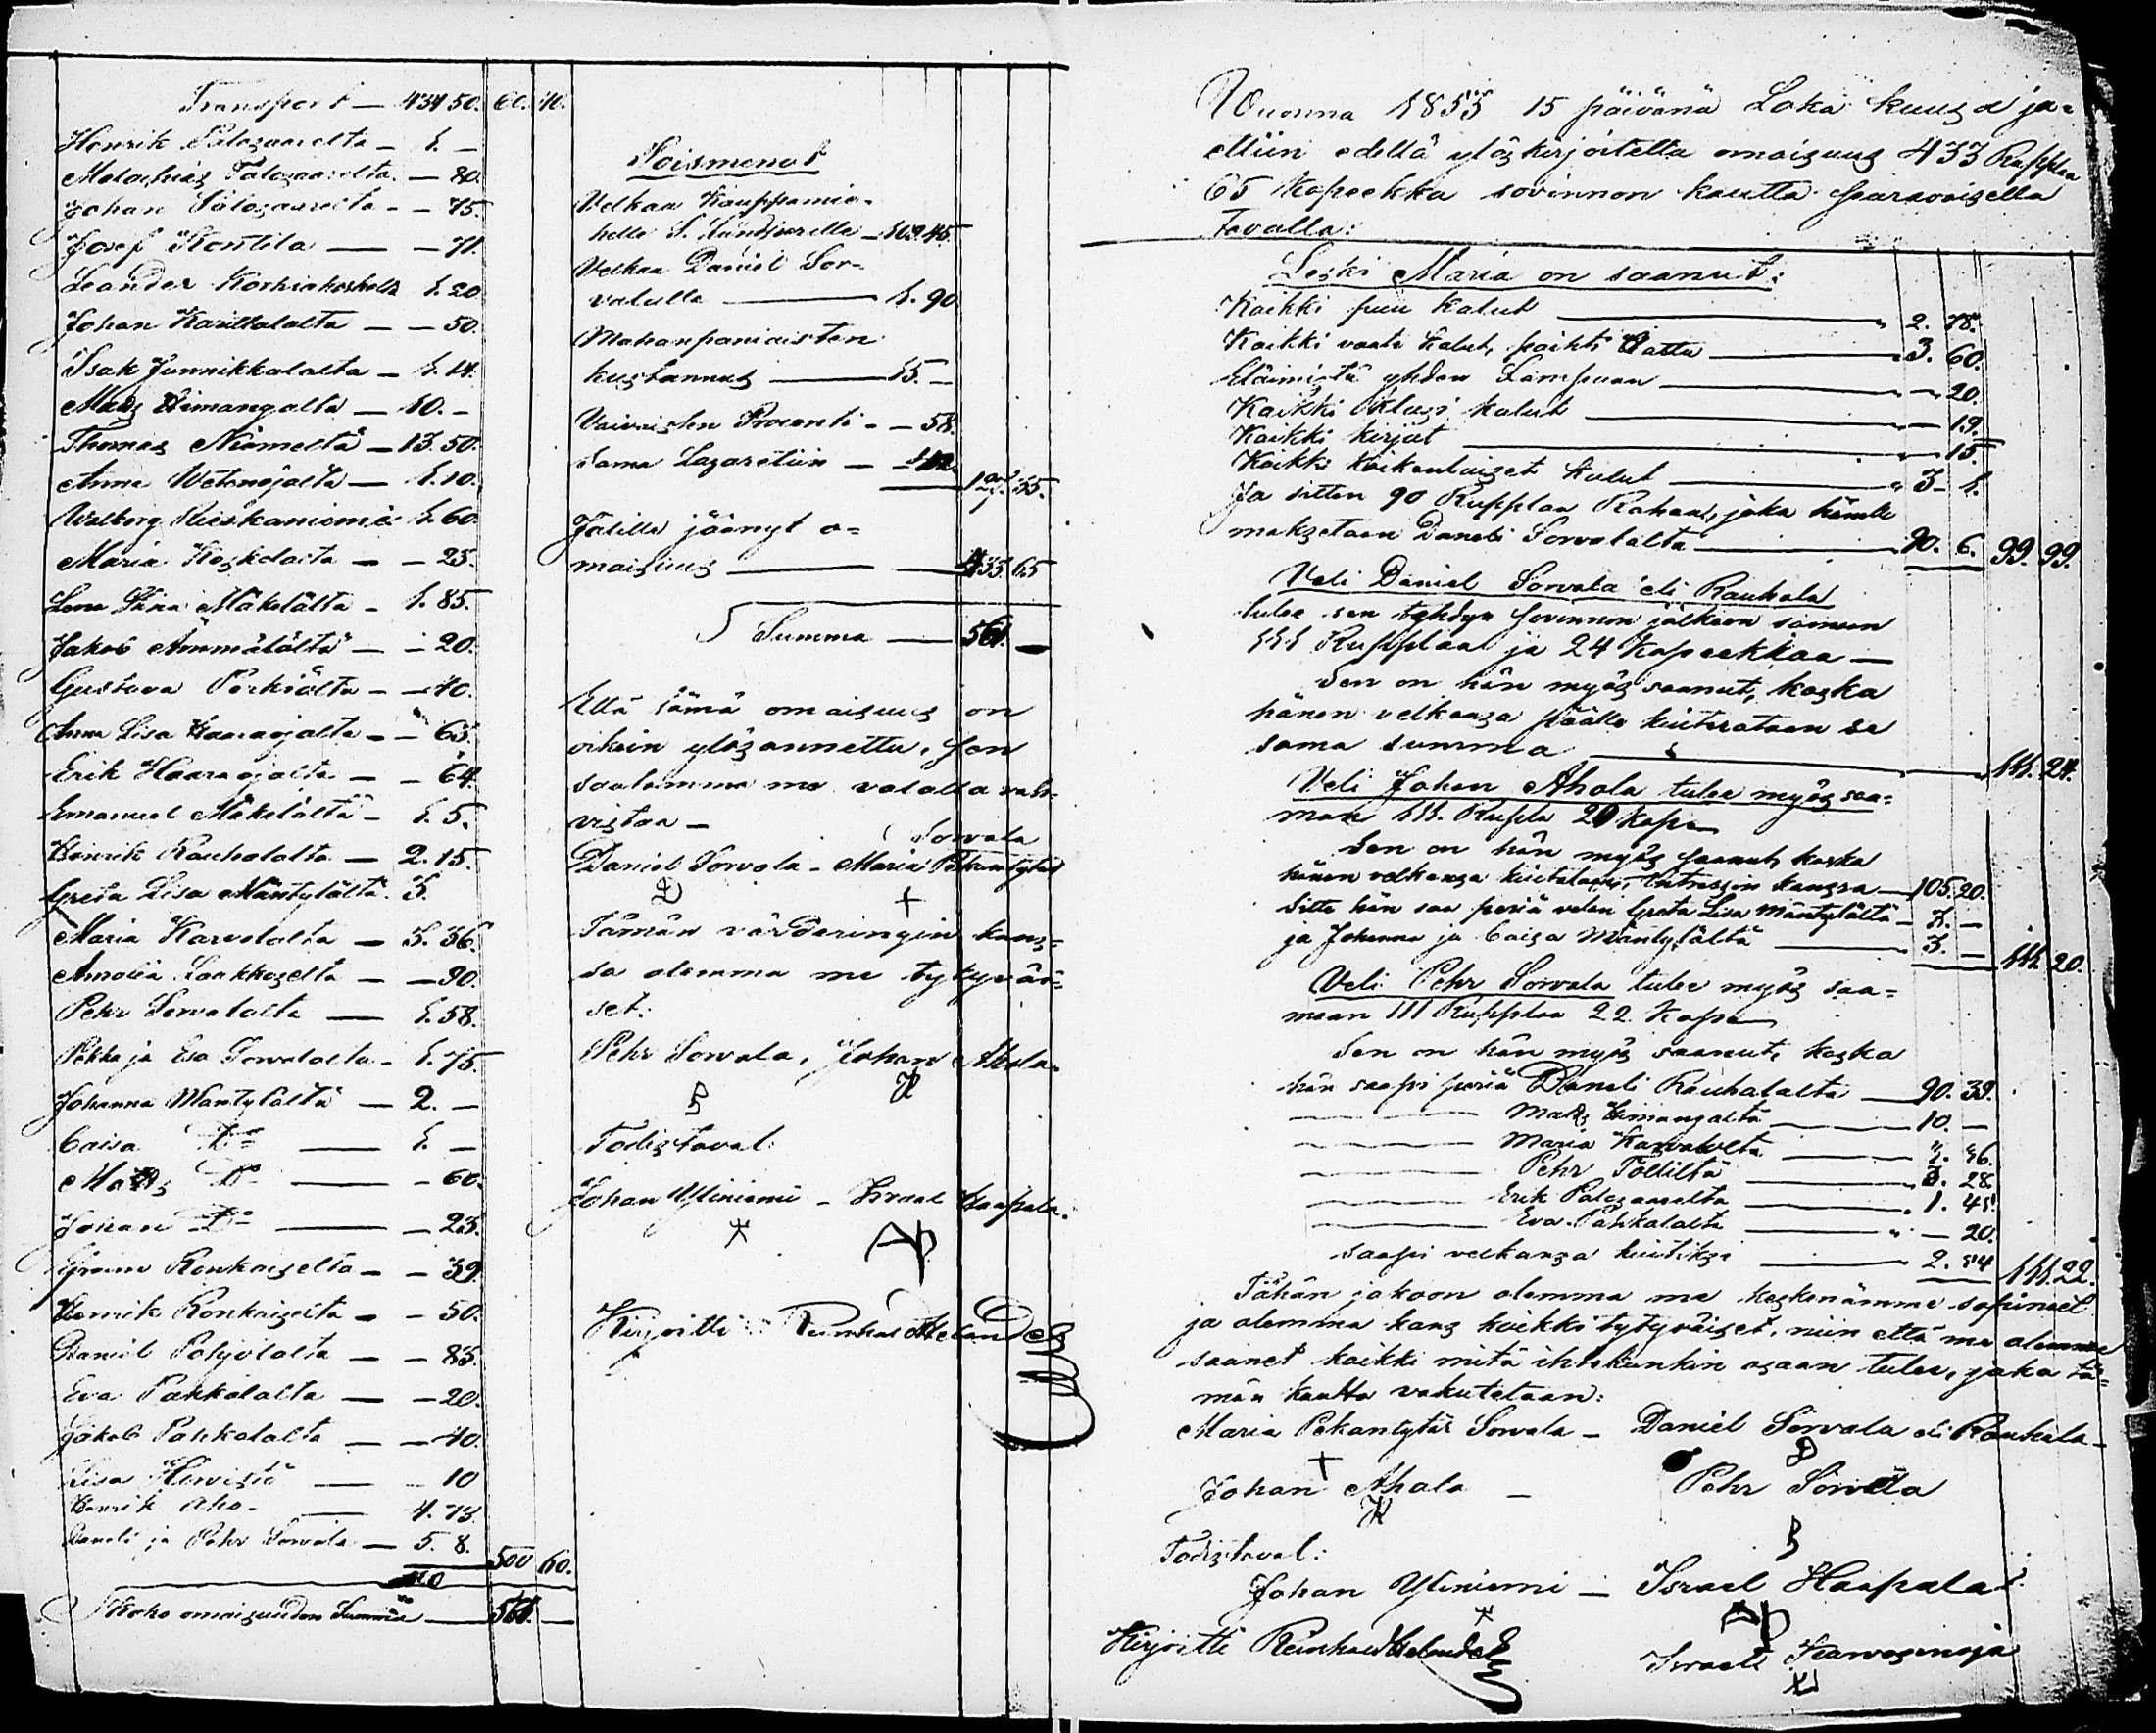 Transport — 434 50. 60. 40.
Henrik Palosaarelta — 1. —
Malachias Palosaarelta — 80.
Johan Palosaarelta — — 75.
Josef Kontila — — 71.
Leander Korhiakoskelta 1. 20
Johan Karittalalta — — 50.
Isak Junnikkalalta — 1. 14.
Mats Himangalta — 10. —
Thomas Niemeltä — 13. 50.
Anna Wetenojalta — 1. 10.
Walborg Rieskaniemi 1. 60.
Maria Koskelalta — — 25.
Lena Stina Mäkelältä — 1. 85.
Jakob Ämmälältä — — 20.
Gustava Pörkiälta — — 40.
Anna Lisa Haaraojalta — — 65.
Erik Haaraojalta — — 64.
Emanuel Mäkelältä — 1. 5.
Henrik Rauhalalta — 2. 15.
Greta Lisa Mäntylältä. 3.
Maria Karvolalta — 3. 36.
Amalia Laakkoselta — — 90.
Pehr Sorvalalta — 1. 58.
Pekka ja Esa Sorvalalta — 1. 75.
Johanna Mäntylältä — 2. —
Caisa Do — 1. —
Matts Do — — 60.
Johan Do — — 25.
Ronkaiselta — — 39.
Henrik Ronkaiselta — — 50.
Daniel Pohjolalta — — 85.
Eva Pahkalalta — — 20.
Jakob Pahkalalta — — 40.
Lisa — — 10
Henrik Aho — 4. 75.
Daneli ja Pehr Sorvala — 5. 8.
500 60.
Koko omaisuuden Summa — 561. —
Poismenot
Velkaa Kauppamie-
helle S. — 109. 45.
Velkaa Daniel Sor-
valalle — 1. 90
Mahanpaniaisten
kustannus — 15. —
Vaivaisten Procenti — — 58.
Sama Lazaretiin —
127. 35.
Jälille jäänyt o=
maisuus — 433 65
Summa — 561. —
Että tämä omaisuus on
oikein ylösannettu, sen
saatamma me valalla vah-
vistaa —
Sorvala
Daniel Sorvola — Maria Pekantytär
D +
Tämän värderingin kans=
sa olemma me tytyväi=
set:
Pehr Sorvala, Johan Ahola.
Todistavat:
Johan Yliniemi — Israel Haapala.
Kirjoitti Reinhold Helander
Wuonna 1855 15 päivänä Loka kuusa ja=
ettiin edellä ylöskirjoitettu omaisuus 433 Rupplaa
65 Kopeekka sovinnon kautta seuraavaisella
Tavalla:
Leski Maria on saanut:
Kaikki puu kalut — 2. 78.
Kaikki vaate kalut, paitsi Hattu — 3. 60.
Eläimistä yhden Lampaan — — 20.
Kaikki Klasi kalut — — 19.
Kaikki kirjat — — 15.
Kaikki kaikenlaiset kalut — 3. 1.
Ja sitten 90 Rupplaa Rahaa, joka hänelle
maksetaan Daneli Sorvalalta — 90. 6. 99. 99.
Veli Daniel Sorvala eli Rauhala
tulee sen tehdyn sovinnon jälkeen saamaan
111 Rupplaa ja 24 Kopeekkaa —
Sen on hän myös saanut, koska
hänen velkansa päälle kuiterataan se
sama summa — 111. 24.
Veli Johan Ahola tulee myös saa=
maan 111. Rupla 20 kope
Sen on hän myös saanut, koska
hänen velkansa kuitataan, intressin kanssa — 105. 20.
Sitte hän saa periä velan Greta Lisa Mäntylältä — 3. —
ja Johanna ja Caisa Mäntylältä — 3. — 111. 20.
Veli Pehr Sorvala tulee myös saa=
maan 111 Rupplaa 22 Kope
Sen on hän myös saanut, koska
hän saapi periä Daneli Rauhalalta — 90. 39.
Mats Himangalta — 10. —
Maria Karvolalta — 36.
Pehr Tölliltä — 28.
Erik Palosaarelta — 1. 45.
Eva Pahkalalta — — 20.
saapi velkansa kuitiksi — 2. 54 111. 22.
Tähän jakoon olemma me keskenämme sopineet
ja olemma kans kaikki tytyväiset, niin että me olemme
saanet kaikki mitä itsekunkin osaan tulee, joka tä=
män kautta vakutetaan:
Maria Pekantytär Sorvala — Daniel Sorvala eli Rauhala —
+ D
Johan Ahola — Pehr Sorvala
Todistavat:
Johan Yliniemi — Israel Haapala
Kirjoitti Reinhold Helander
Israel Karvosenoja